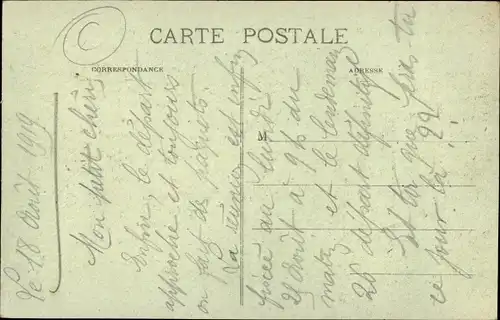 CARTE POSTALE
CORRESPONDANCE
ADRESSE
Le 18 Août 1919
Mon petit chéri
Enfin, le départ
approche et toujours
on fait des paquets.
La revue est enfin
fixée au lundi
25 Août à 9h du
matin et le lendemain
26 départ définitif
Et toi que fais-tu
ce jour là ?